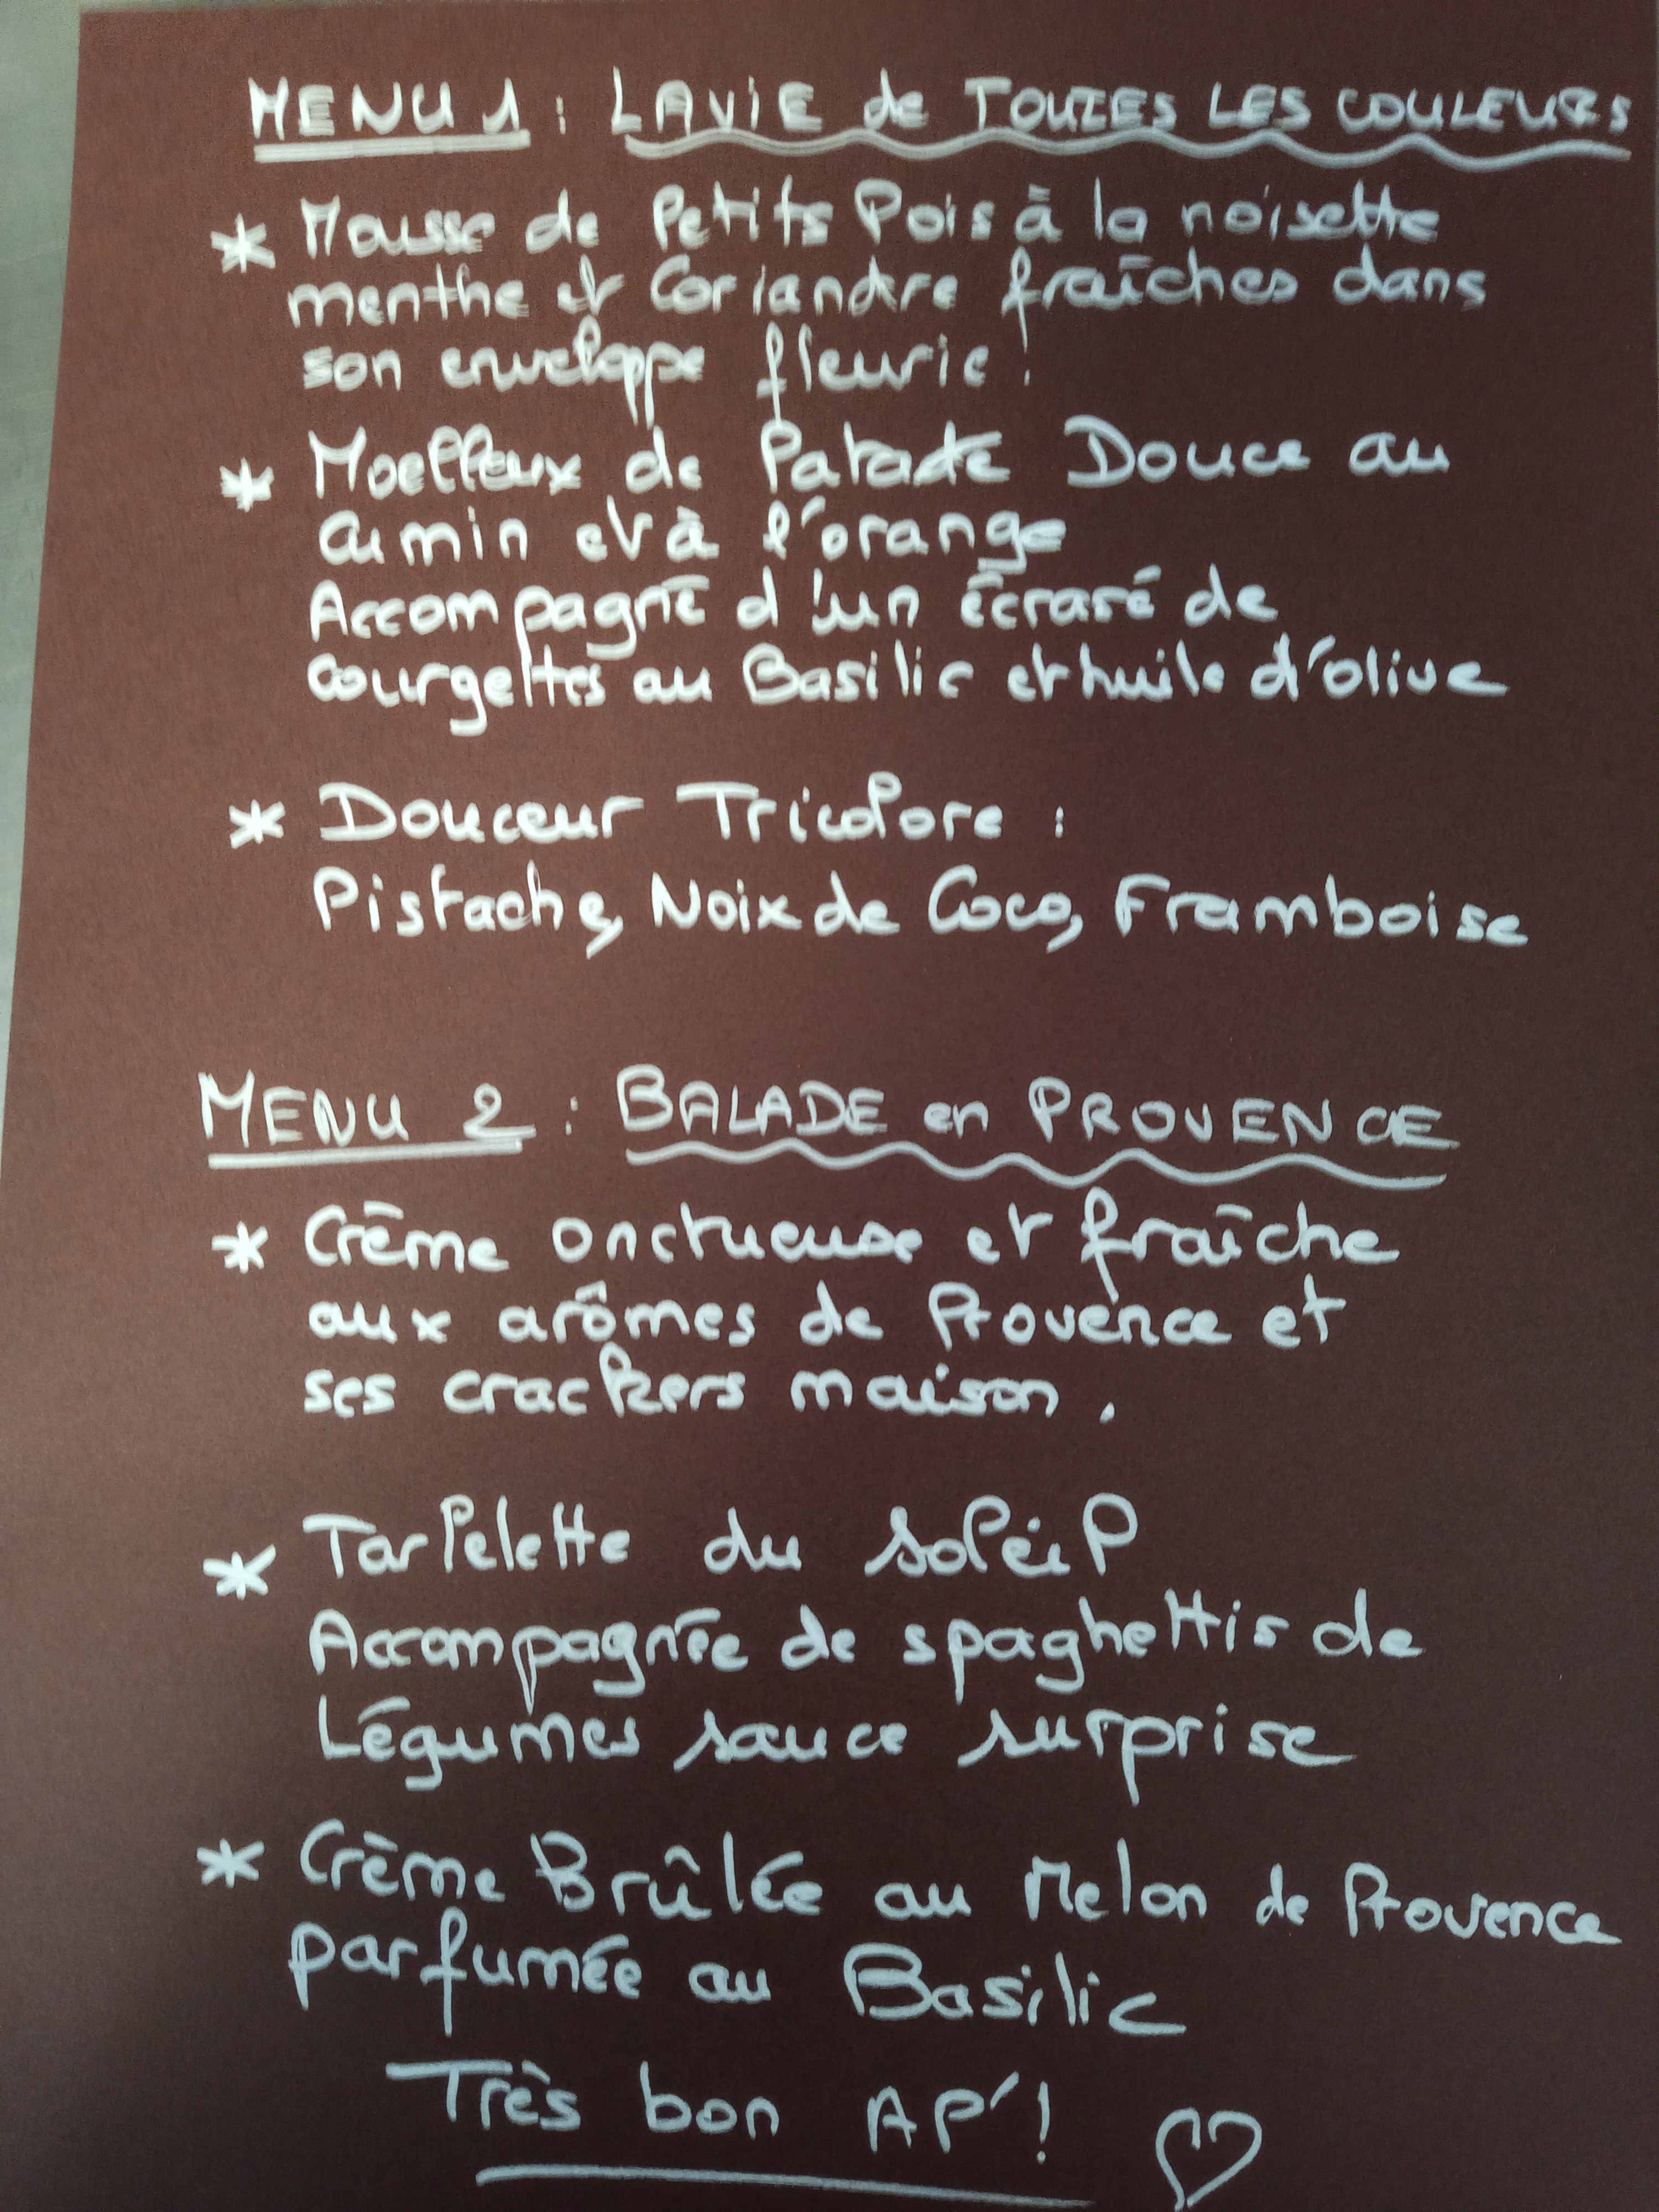 MENU 1 : LA VIE de TOUTES LES COULEURS
* Mousse de Petits Pois à la noisette
menthe et Coriandre fraîches dans
son enveloppe fleurie !
* Moelleux de Patate Douce au
cumin et à l'orange
Accompagné d'un écrasé de
courgettes au Basilic et huile d'olive
* Douceur Tricolore :
Pistache, Noix de Coco, Framboise
MENU 2 : BALADE en PROVENCE
* Crème onctueuse et fraîche
aux arômes de Provence et
ses crackers maison.
* Tartelette du soleil
Accompagnée de spaghettis de
Légumes sauce surprise
* Crème Brûlée au Melon de Provence
parfumée au Basilic
Très bon AP'!